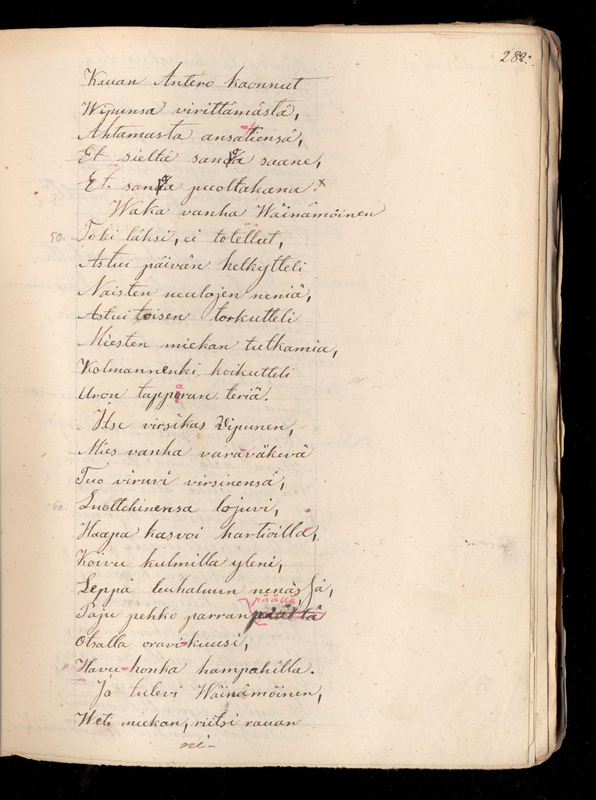 282.
Kauan Antero kaonnut
Wipunsa virittämästä,
Ahtamasta ansatiensä,
Et sieltä sanoa saane,
Et sanoa puoltakana. x
Waka vanha Wäinämöinen
50. Toki läksi, ei totellut,
Astui päivän helkytteli
Naisten neulojen neniä,
Astui toisen torkutteli
Miesten miekan tutkamia,
Kolmannenki koikutteli
Uron tapparan teriä.
Itse virsikäs Vipunen,
Mies vanha varaväkevä
Tuo viruvi virsinensä,
60. Luottehinensa lojuvi,
Haapa kasvoi hartioilla,
Koivu kulmilla yleni,
Leppä leukaluun nenässä,
Paju pehko parran päällä
Otsalla oravi-kuusi,
Havu-honka hampahilla.
Jo tulevi Wäinämöinen,
Weti miekan, riitsi rauan